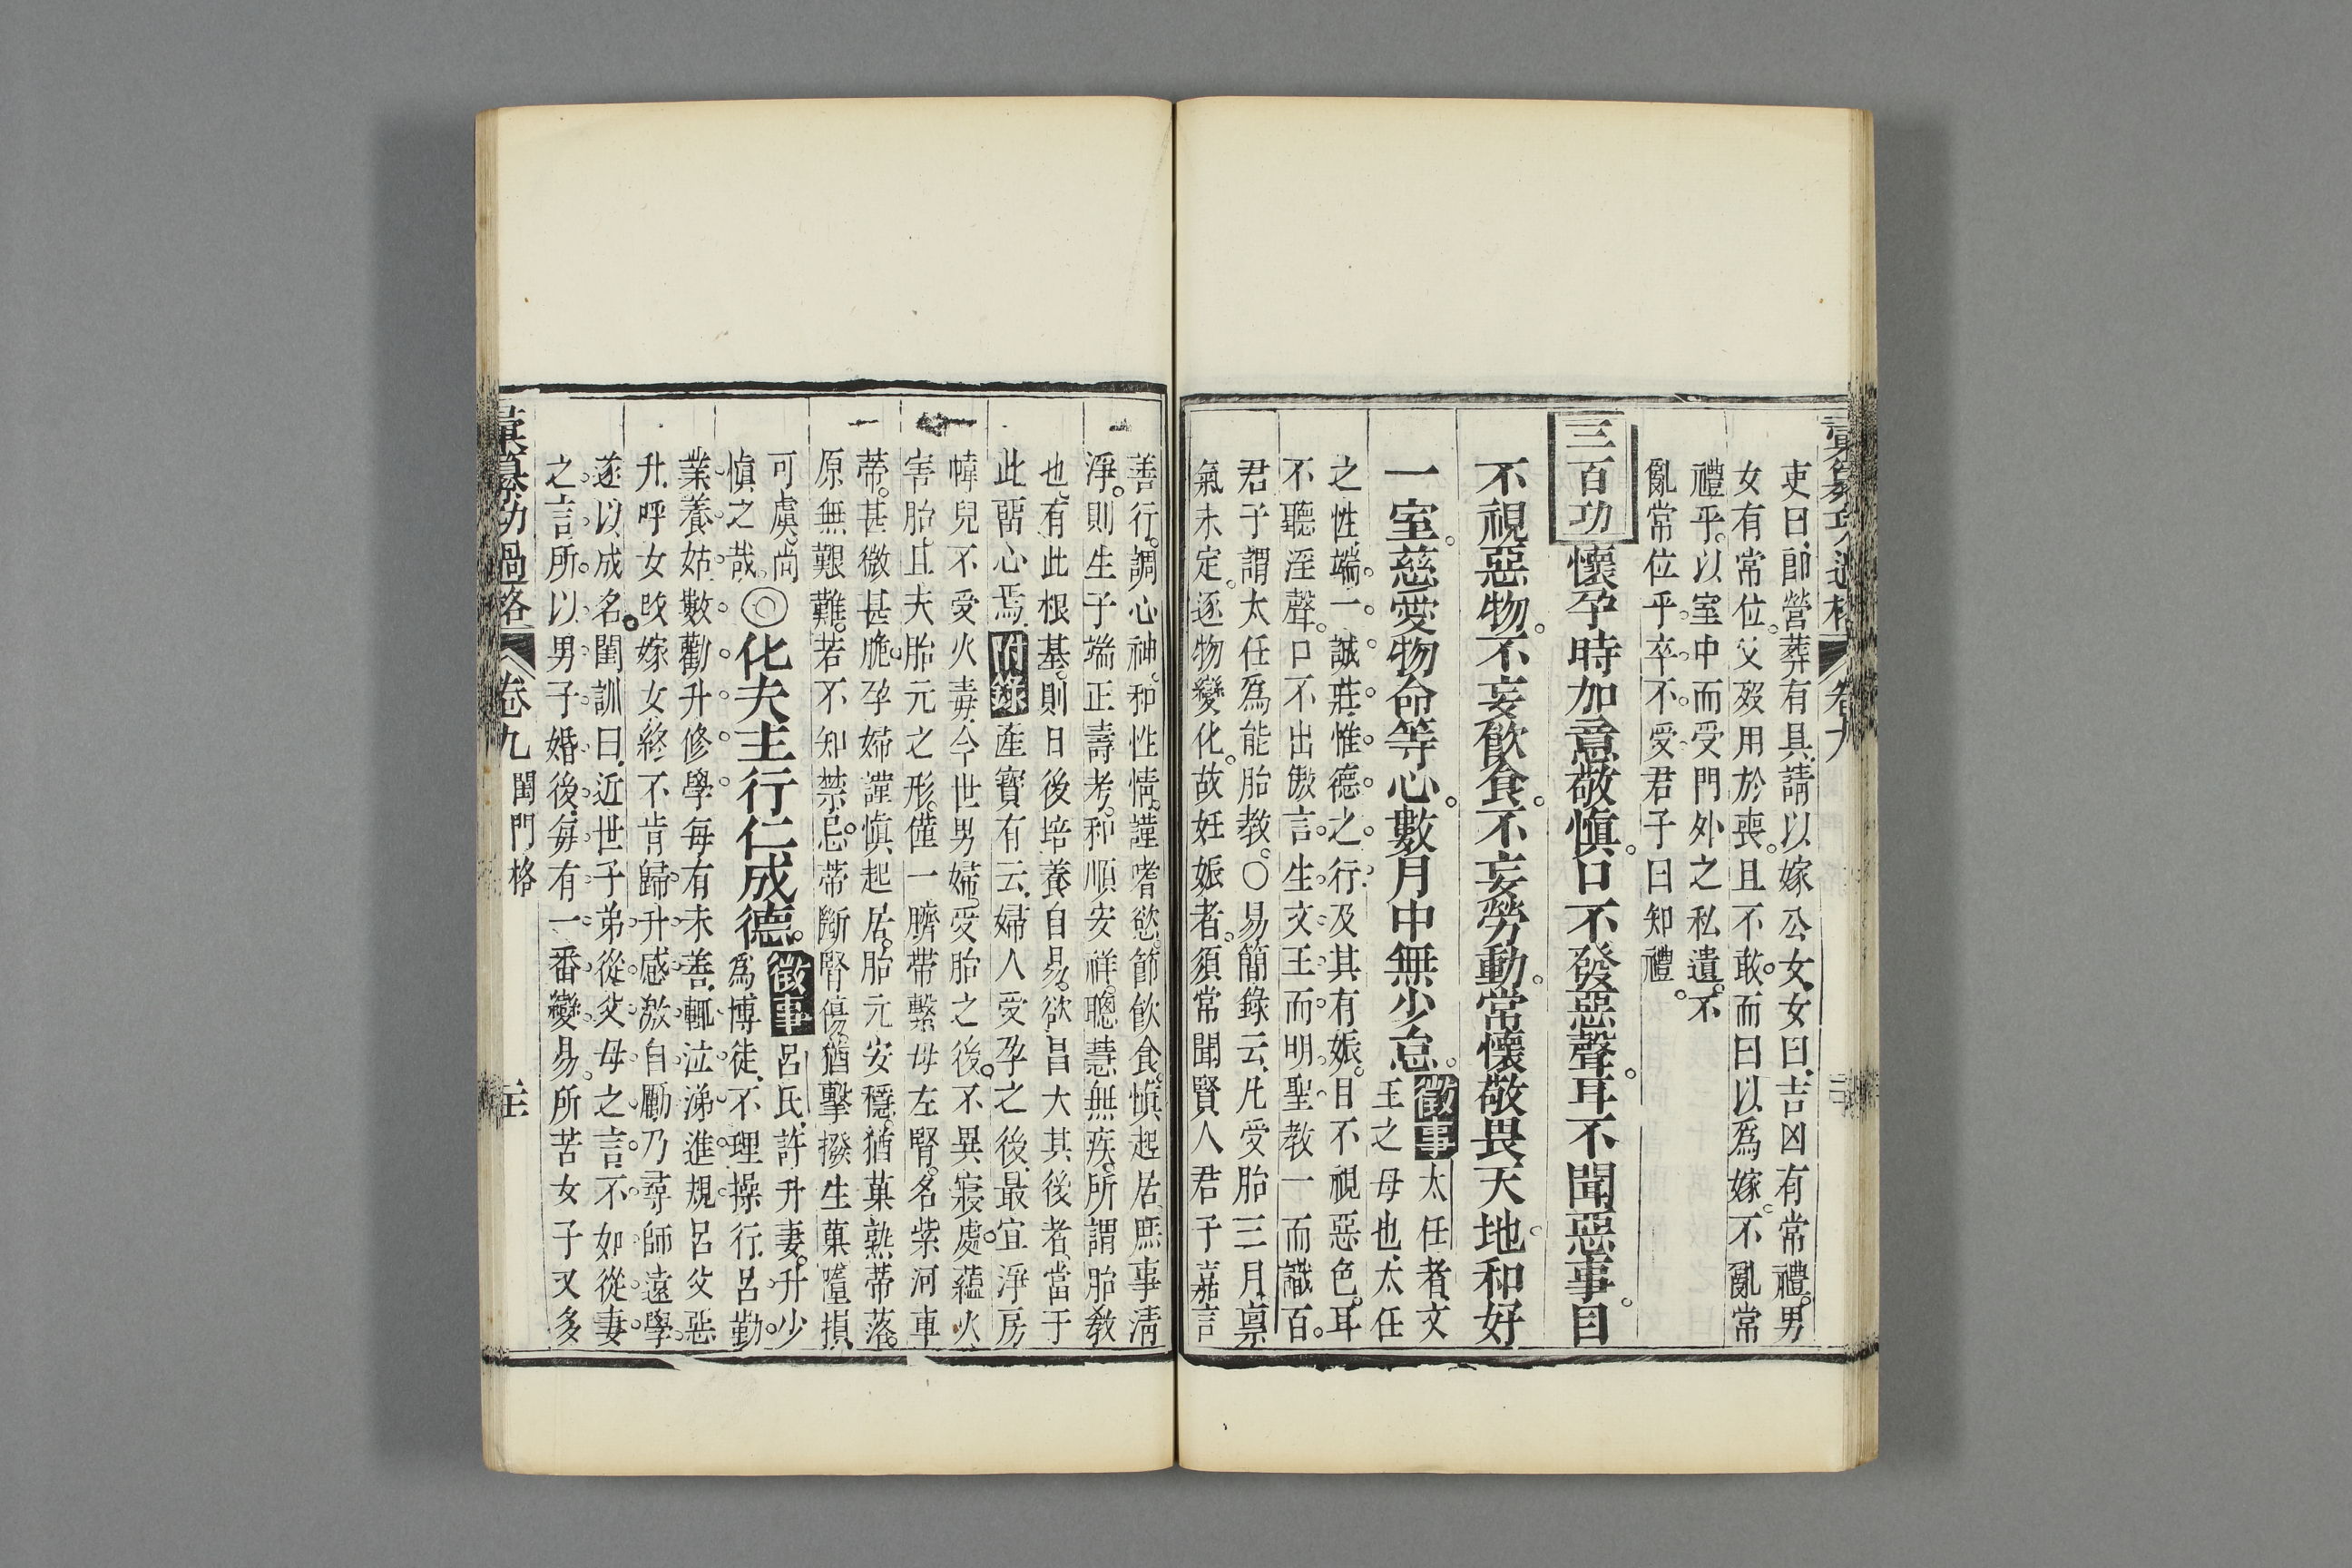 吏曰。卽營葬有具。請以嫁公女。女曰。吉凶有常禮。男
女有常位。父歿用於喪。且不敢。而曰以爲嫁。不亂常
禮乎。以室中而受門外之私遺。不
亂常位乎。卒不受。君子曰知禮。
三百功
懷孕時加意敬慎。口不發惡聲。耳不聞惡事。目
不視惡物。不妄飲食。不妄勞動。常懷敬畏天地。和好
一室。慈愛物命等心。數月中無少怠。徵事太任者。文
王之母也。太任
之性。端一。誠莊。惟德之行。及其有娠。目不視惡色。耳
不聽淫聲。口不出傲言。生文王而明聖。教一而識百。
君子謂太任爲能胎教。○易簡錄云。凡受胎三月。稟
氣未定。逐物變化。故妊娠者。須常聞賢人君子嘉言
善行。調心神。和性情。謹嗜慾。節飲食。慎起居。庶事淸
淨。則生子端正壽考。和順安祥。聰慧無疾。所謂胎教
也。有此根基。則日後培養自易。欲昌大其後者。當于
此留心焉。附錄產寶有云。婦人受孕之後。最宜淨房
幃。兒不受火毒。今世男婦。受胎之後。不異寢處。蘊火
害胎。且夫胎元之形。僅一臍帶繫母左腎。名紫河車
蒂。甚微甚脆。孕婦謹慎起居。胎元安穩。猶菓熟蒂落。
原無艱難。若不知禁忌。蒂斷腎傷。猶擊撥生菓。墮損
可虞。尚
慎之哉。
◎化夫主行仁成德。徵事呂氏。許升妻。升少
爲博徒。不理操行。呂勤
業養姑。數勸升修學。每有未善。輒泣涕進規。呂父惡
升。呼女改嫁。女終不肯歸。升感激自勵。乃尋師遠學。
遂以成名。閨訓曰。近世子弟。從父母之言。不如從妻
之言。所以男子婚後。每有一番變易。所苦女子又多
彙纂功過格 卷九 閨門格